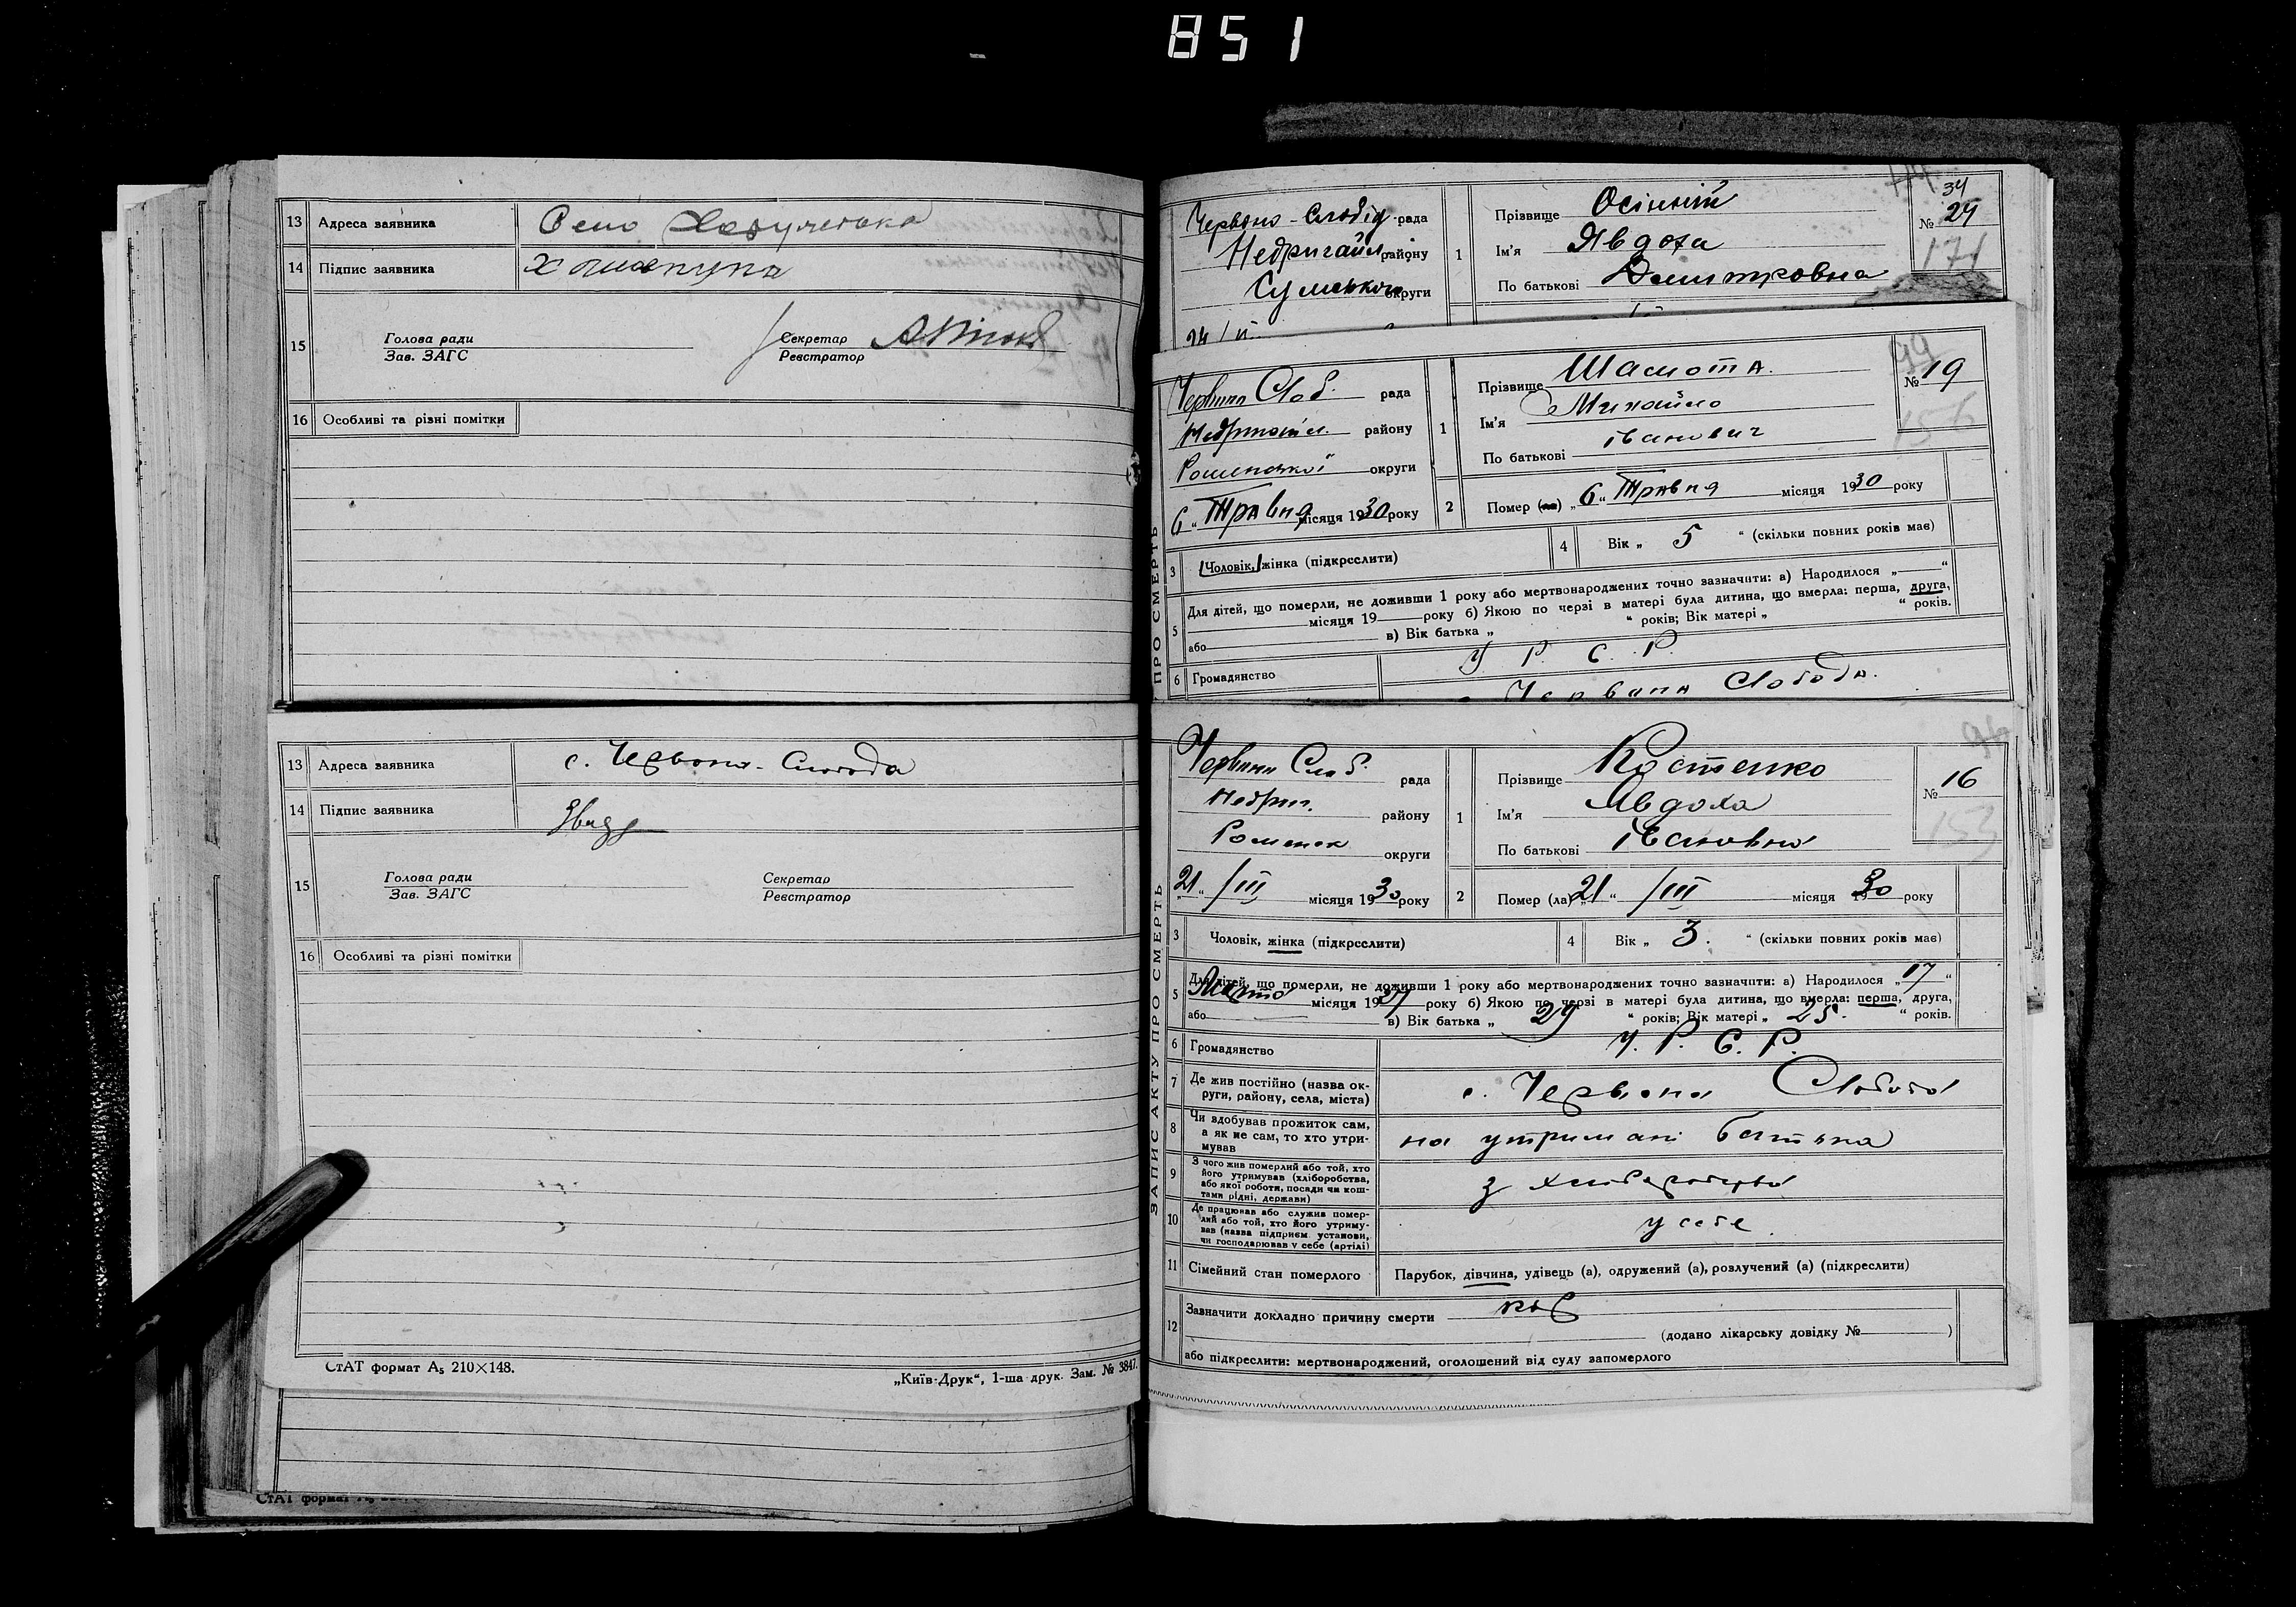 851
13 Адреса заявника Село
14 Підпис заявника
15 Голова ради
Зав. ЗАГС
Секретар
Реєстратор
16 Особливі та різні помітки
13 Адреса заявника с. Червона-Слобода
14 Підпис заявника
15 Голова ради
Зав. ЗАГС
Секретар
Реєстратор
16 Особливі та різні помітки
СтАТ формат А5 210×148.
„Київ-Друк“, 1-ша друк. Зам. № 3847.
СтАТ формат
Червоно-Слобід рада
Недригайл району
Сумської округи
24/
1 Прізвище Осінній
Ім'я Явдоха
По батькові Дмитровна
34
№ 24
171
Червона Слоб. рада
Недригайл. району
Роменської округи
6 „ Травня місяця 1930 року
1 Прізвище Шамота
Ім'я Михайло
По батькові Іванович
99
№ 19
156
2 Помер (ла) „ 6 “ Травня місяця 1930 року
3 Чоловік, жінка (підкреслити)
4 Вік „ 5 “ (скільки повних років має)
5 Для дітей, що померли, не доживши 1 року або мертвонароджених точно зазначити: а) Народилося „ “
місяця 19 року б) Якою по черзі в матері була дитина, що вмерла: перша, друга,
або в) Вік батька „ “ років; Вік матері „ “ років.
6 Громадянство У. Р. С. Р.
Червона Слобода.
ПРО СМЕРТЬ
Червона Слоб. рада
Недриг. району
Роменск округи
21 “ /III місяця 1930 року
1 Прізвище Костенко
Ім'я Явдоха
По батькові Івановна
94
№ 16
153
2 Помер (ла) „ 21 “ /III місяця 1930 року
3 Чоловік, жінка (підкреслити)
4 Вік „ 3. “ (скільки повних років має)
5 Для дітей, що померли, не доживши 1 року або мертвонароджених точно зазначити: а) Народилося „ 17 “
Марта місяця 1927 року б) Якою по черзі в матері була дитина, що вмерла: перша, друга,
або в) Вік батька „ 29 “ років; Вік матері „ 25. “ років.
6 Громадянство У. Р. С. Р.
7 Де жив постійно (назва округи, району, села, міста) с. Червона Слобода
8 Чи вдобував прожиток сам, а як не сам, то хто утримував на утримані батька
9 З чого жив померлий або той, хто його утримував (хліборобства, або якої роботи, посади чи коштами рідні, держави) з хліборобства
10 Де працював або служив померлий або той, хто його утримував (назва підприєм. установи, чи господарював у себе (артілі) у себе
11 Сімейний стан померлого Парубок, дівчина, удівець (а), одружений (а), розлучений (а) (підкреслити)
12 Зазначити докладно причину смерти кір
(додано лікарську довідку № )
або підкреслити: мертвонароджений, оголошений від суду запомерлого
ЗАПИС АКТУ ПРО СМЕРТЬ